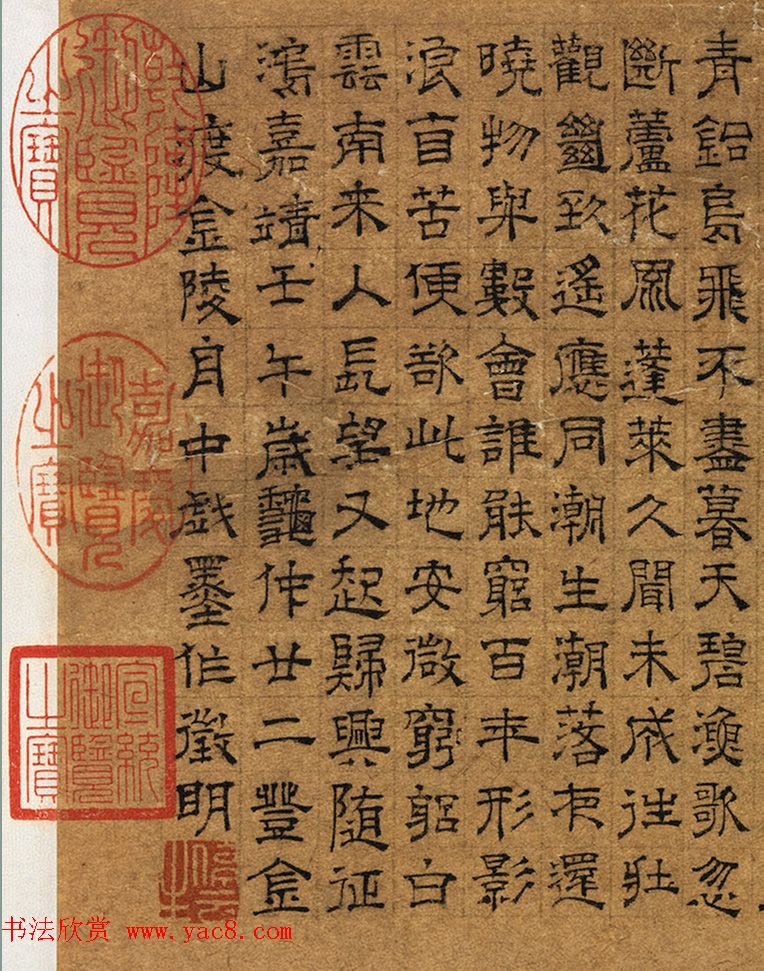 青鉛鳥飛不盡暮天碧漁歌忽
斷蘆花風蓬萊久聞未成往壯
觀絕致遙應同潮生潮落夜還
曉物與數會誰能窮百年形影
浪自苦便欲此地安微窮躬白
雲南来人長望又起歸興随征
鴻嘉靖壬午歲龝仲廿二登金
山渡金陵舟中戲墨作徵明
乾隆御覽之寶
嘉慶御覽之寶
宣統御覽之寶
书法欣赏 www.yac8.com